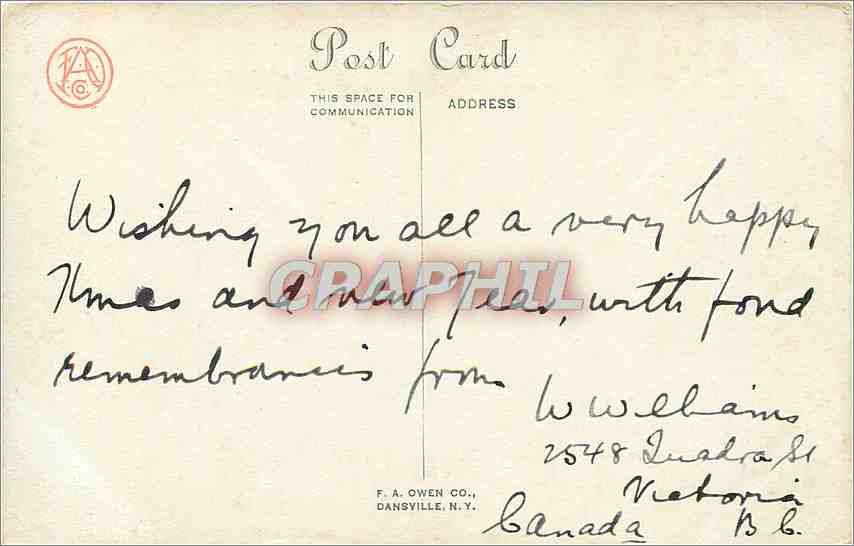 FAO Co.
Post Card
THIS SPACE FOR
COMMUNICATION
ADDRESS
Wishing you all a very happy
Xmas and new Year, with fond
remembrances from
CPAPHIL
W Williams
2548 Quadra St
Victoria
Canada B C.
F. A. OWEN CO.,
DANSVILLE, N. Y.